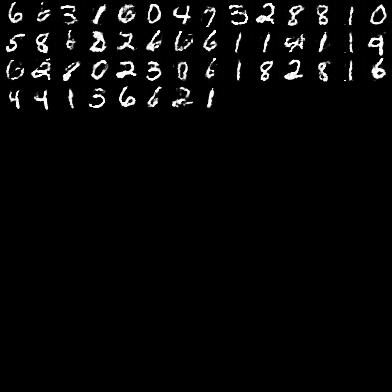 6 6 3 1 6 0 4 7 3 2 8 8 1 0
5 8 6 2 2 6 6 6 1 1 4 1 1 9
6 2 8 0 2 3 0 6 1 8 2 8 1 6
4 4 1 3 6 6 2 1